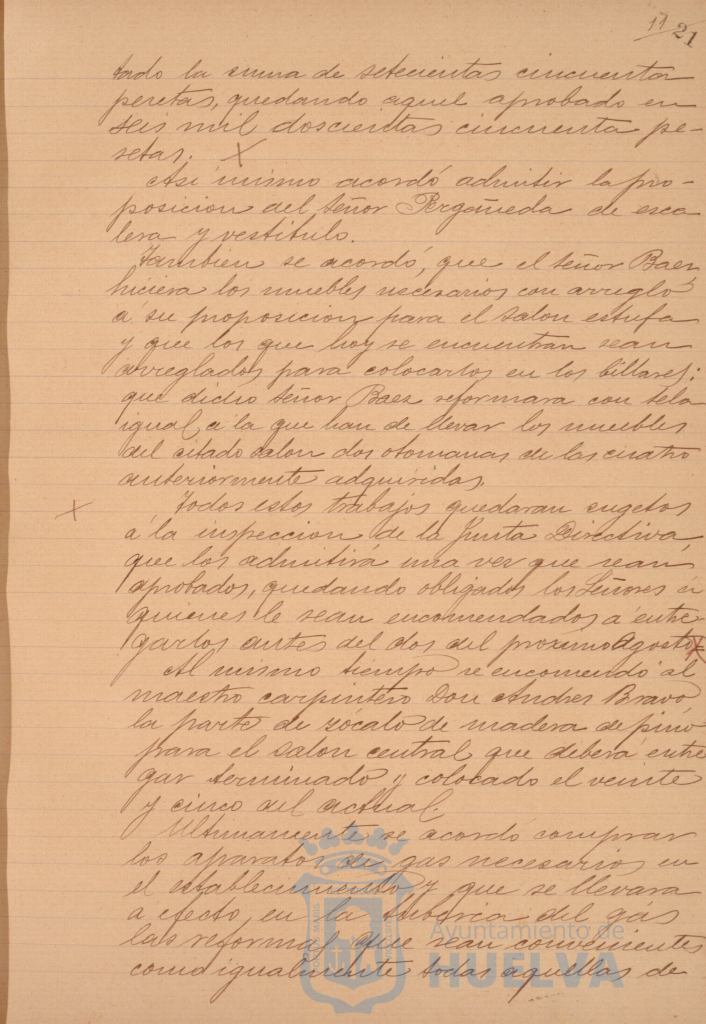 17 21
tado la suma de setecientas cincuenta
pesetas, quedando aquel aprobado en
seis mil doscientas cincuenta pe-
setas. X
Asi mismo acordó admitir la pro-
posicion del Señor de esca
lera y vestibulo.
Tambien se acordó, que el Señor Baez
hiciera los muebles necesarios con arreglo
á su proposicion para el salon estufa
y que los que hoy se encuentran sean
arreglados para colocarlos en los billares;
que dicho Señor Baez reformara con tela
igual a la que han de llevar los muebles
del citado salon dos otomanas de las cuatro
anteriormente adquiridas.
X Todos estos trabajos quedaran sugetos
á la inspeccion de la Junta Directiva,
que los admitirá una vez que sean
aprobados, quedando obligados los Señores á
quienes le sean encomendados á entre
garlos antes del dos del proximo Agosto X
Al mismo tiempo se encomendó al
maestro carpintero Don Andres Bravo
la parte de zócalo de madera de pino
para el salon central que deberá entre
gar terminado y colocado el veinte
y cinco del actual.
Ultimamente se acordó comprar
los aparatos de gas necesarios en
el establecimiento y que se llevara
a efecto, en la tuberia del gas
las reformas que sean convenientes
como igualmente todas aquellas de
Ayuntamiento de
HUELVA